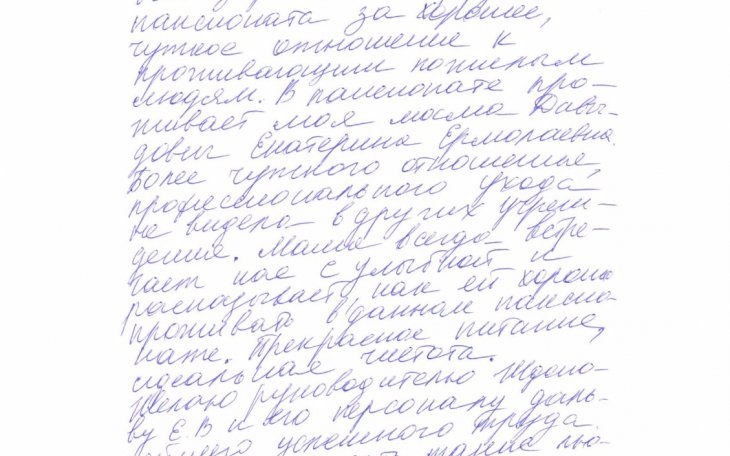 пансионата за хорошее,
чуткое отношение к
проживающим пожилым
людям. В пансионате про-
живает моя мама Давы-
дович Екатерина Ермолаевна.
Более чуткого отношения,
профессионального ухода
не видела в других учреж-
дениях. Мама всегда встре-
чает нас с улыбкой и
рассказывает, как ей хорошо
проживать в данном пансио-
нате. Прекрасное питание,
идеальная чистота.
Желаю руководителю
ву Е.В и его персоналу даль-
нейшего успешного труда.
такие лю-